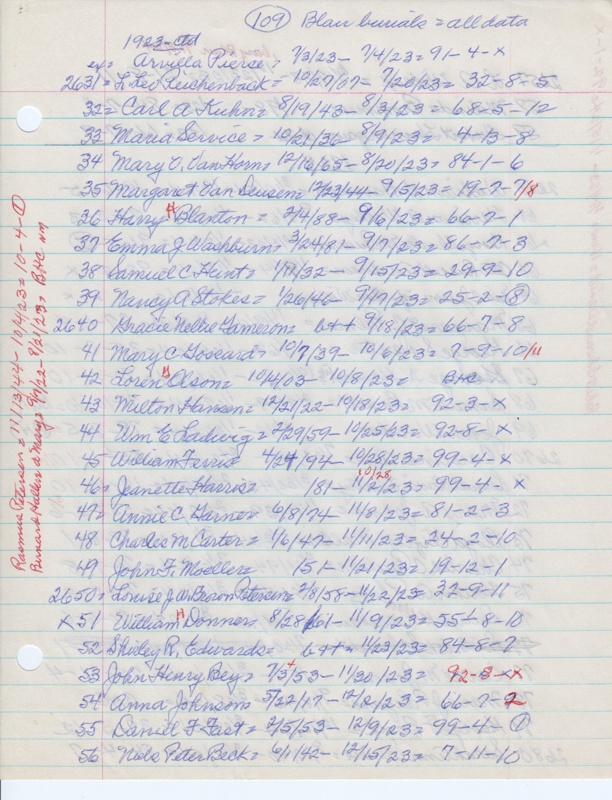 109 Blair burials = all data
1923 - ctd
ex = Arvilla Pierce = 7/3/23 - 7/4/23 = 91-4-x
2631 = L. Leo Reichenback = 10/27/07 - 7/20/23 = 32-8-5
32 = Carl A Kuhn = 8/19/43 - 8/3/23 = 68-5-12
33 Maria Service = 10/21/36 - 8/9/23 = 4-13-8
34 Mary V. Van Horn = 12/16/65 - 8/20/23 = 84-1-6
35 Margaret Van Deusen = 12/23/44 - 9/5/23 = 19-7-7/8
36 Harry H Blanton = 2/4/88 - 9/6/23 = 66-7-1
37 Emma J Washburn = 3/24/81 - 9/7/23 = 86-7-3
38 Samuel C. Hunt = 1/11/32 - 9/15/23 = 29-9-10
39 Nancy A Stokes = 1/26/46 - 9/17/23 = 25-2-8
2640 Gracie Nellie Gameron = b++ 9/18/23 = 66-7-8
41 Mary C Goseard = 10/7/39 - 10/6/23 = 7-9-10/11
42 Loren H Olson = 10/4/03 - 10/8/23 = BHC
43 Milton Hansen = 12/21/22 - 10/18/23 = 92-3-x
44 Wm E Ladwig = 2/29/59 - 10/25/23 = 92-8-x
45 William Ferris 4/24/94 - 10/28/23 = 99-4-x
46 = Jeanette Harris = /81 - 11/2/23 10/28 = 99-4-x
47 = Annie C. Garner 6/8/74 - 11/8/23 = 81-2-3
48 Charles M Carter = 1/6/47 - 11/11/23 = 24-2-10
49 John F. Moeller = /51 - 11/21/23 = 19-12-1
2650 = Louise J. Petersen = 2/8/58 - 11/22/23 = 32-9-11
x 51 William H Donner 8/28/61 - 11/9/23 = 55-8-10
52 Shirley R. Edwards = b++ = 11/23/23 = 84-8-7
53 John Henry Bey = 7/3/53 - 11/30/23 = 92-8-x
54 Anna Johnson 5/22/17 - 12/2/23 = 66-7-2
55 Daniel F Fast = 2/5/53 - 12/9/23 = 99-4-1
56 Nels Peter Beck = 6/1/42 - 12/15/23 = 7-11-10
Rasmus Petersen = 11/13/44 - 10/4/23 = 10-4-1
9/9/22 - 8/21/23 = BHC nm